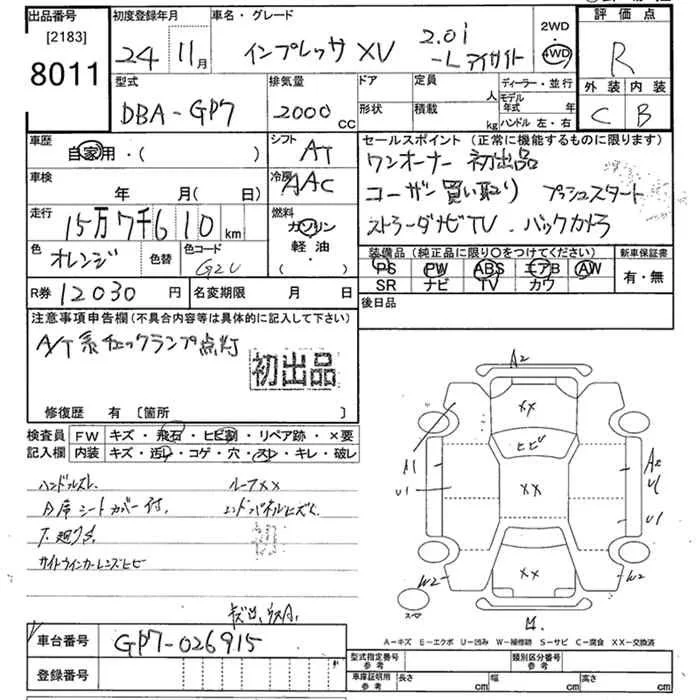 出品番号 初度登録年月 車名・グレード 2WD・4WD 評価点
[2183]
8011
24 11月 インプレッサ XV 2.0i
-L アイサイト
R
型式 排気量 ドア 定員 人 ディーラー・並行 外装 内装
DBA-GP7 2000cc 形状 積載 kg モデル年式 年
ハンドル 左・右
C B
車歴 自家用・( ) シフト AT セールスポイント(正常に機能するものに限ります)
ワンオーナー 初出品
車検 年 月( 日) 冷房 AAC
コーザン買い取り プッシュスタート
走行 15万7千610km 燃料 ガソリン
軽油
・( )
ストラーダナビTV. バックカメラ
色 オレンジ 色替 色コード G2U
装備品(純正品に限り○をつけてください) 新車保証書
PS PW ABS エアB AW 有・無
SR ナビ TV カワ
R券 12030円 名変期限 月 日 後日品
注意事項申告欄(不具合内容等は具体的に記入して下さい)
A/T系チェックランプ点灯
初出品
修復歴 有 [箇所 ]
検査員 FW キズ・飛石・ヒビ割・リペア跡・×要
記入欄 内装 キズ・汚レ・コゲ・穴・スレ・キレ・破レ
ハンドルスレ ルーフXX
シートカバー付.
サイドウインカーレンズヒビ
A2
XX
ヒビ
A1 U1
XX
A2 U1
U1
W2 XX W2
スペア
A-キズ E-エクボ U-凹み W-補修跡 S-サビ C-腐食 XX-交換済
車台番号 GP7-026915
型式指定番号 参考 類別区分番号 参考
登録番号 車庫証明用 参考 長さ cm 幅 cm 高さ cm